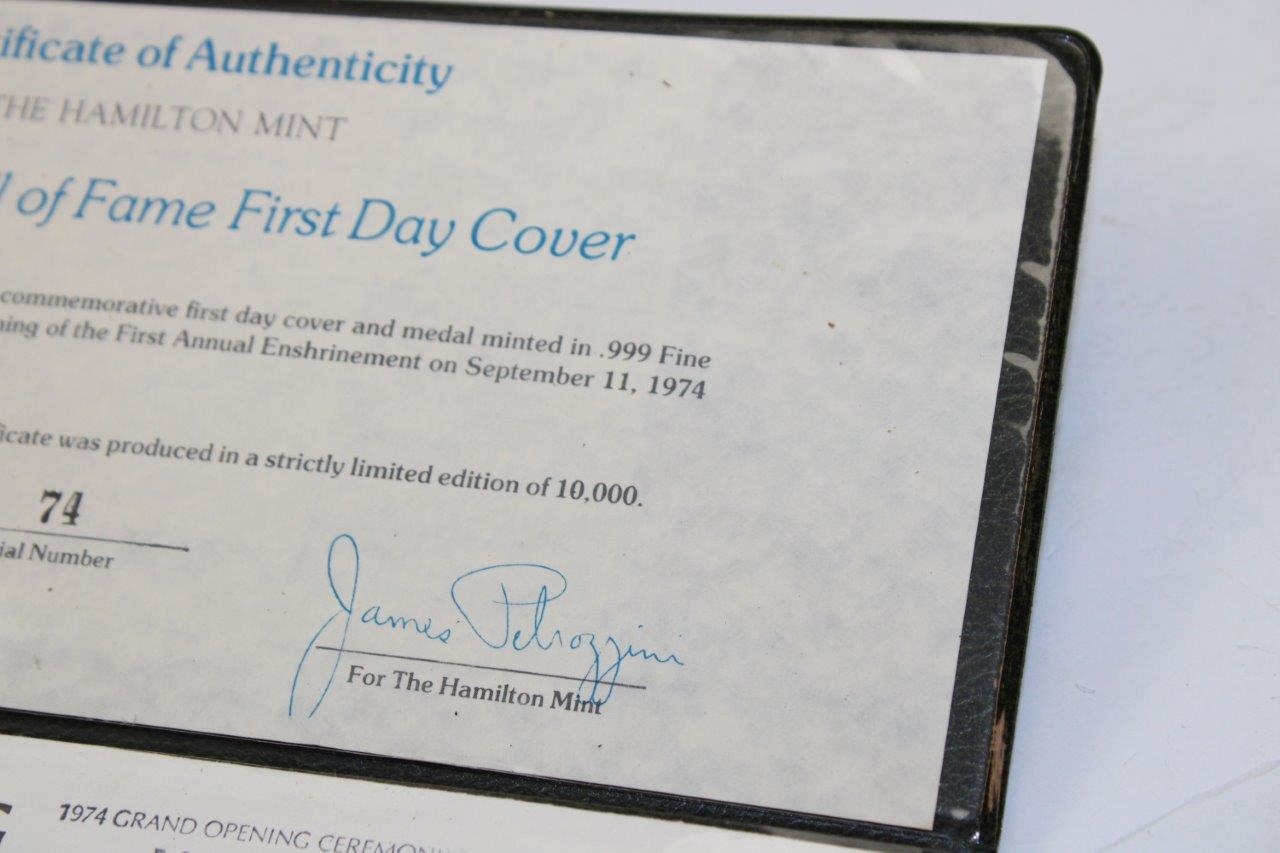 ificate of Authenticity
THE HAMILTON MINT
l of Fame First Day Cover
commemorative first day cover and medal minted in .999 Fine
ning of the First Annual Enshrinement on September 11, 1974
ficate was produced in a strictly limited edition of 10,000.
74
ial Number
James Petrozzini
For The Hamilton Mint
1974 GRAND OPENING CEREMONI